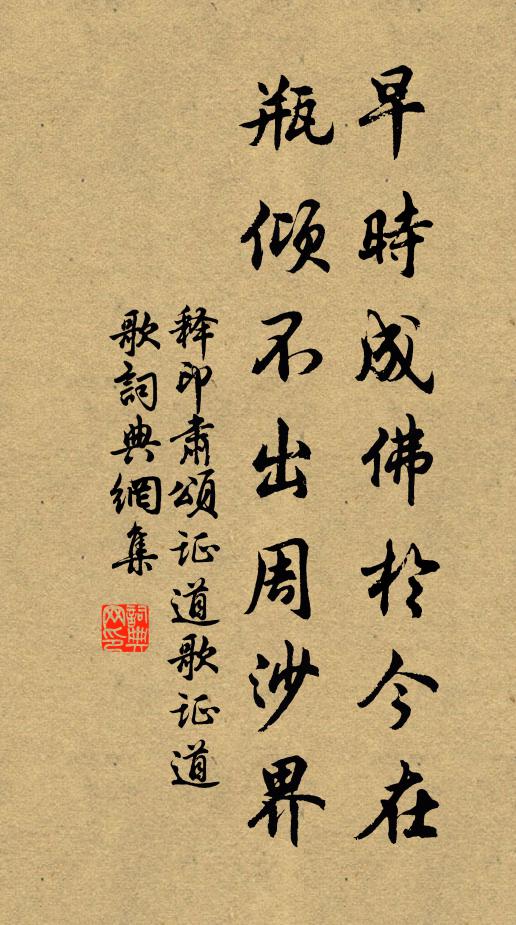 早時成佛於今在
瓶傾不出周沙界
释印肃頌证道歌证道
歌詞典網集
詞典
网印